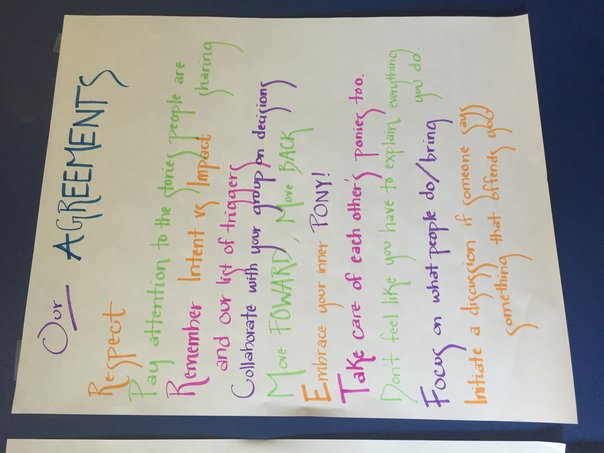 Our AGREEMENTS
Respect
Pay attention to the stories people are
sharing
Remember Intent vs Impact
and our list of triggers
Collaborate with your group on decisions
Move FOWARD, Move BACK
Embrace your inner PONY!
Take care of each other's ponies too.
Don't feel like you have to explain everything
you do.
Focus on what people do/bring
Initiate a discussion if someone says
something that offends you